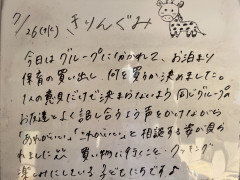 7/26(水) きりんぐみ
今日はグループに分かれて、お泊まり
保育の買い出し、何を買うか決めました。
1人の意見だけで決まらないよう同じグループの
お友達とよく話し合うよう声をかけながら
「あれがいい」「これがいい」と相談する姿が見ら
れました。 買い物に行くこと・クッキング
楽しみにしている子どもたちです♪